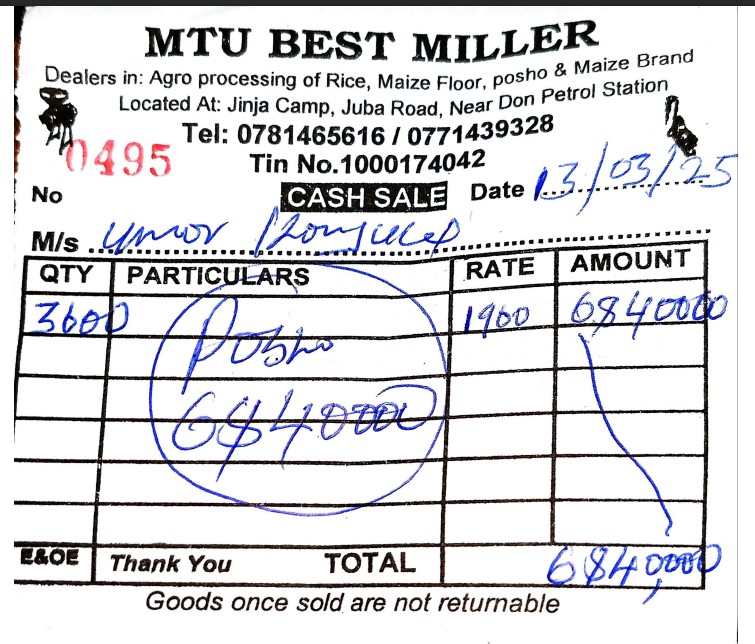 MTU BEST MILLER
Dealers in: Agro processing of Rice, Maize Floor, posho & Maize Brand
Located At: Jinja Camp, Juba Road, Near Don Petrol Station
Tel: 0781465616 / 0771439328
0495
Tin No.1000174042
No CASH SALE Date 13/03/25
M/s
QTY PARTICULARS RATE AMOUNT
3600 Posho 1900 6840000
6840000
E&OE Thank You TOTAL 6840,000
Goods once sold are not returnable